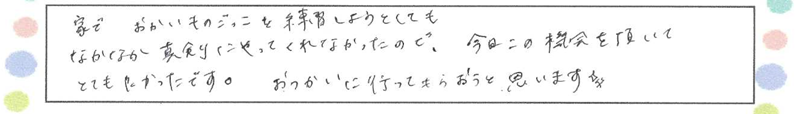 家で おかいものごっこを練習しようとしても
なかなか真剣にやってくれてなかったので、今日この機会を頂いて
とてもよかったです。 おつかいに行ってもらおうと思います☆